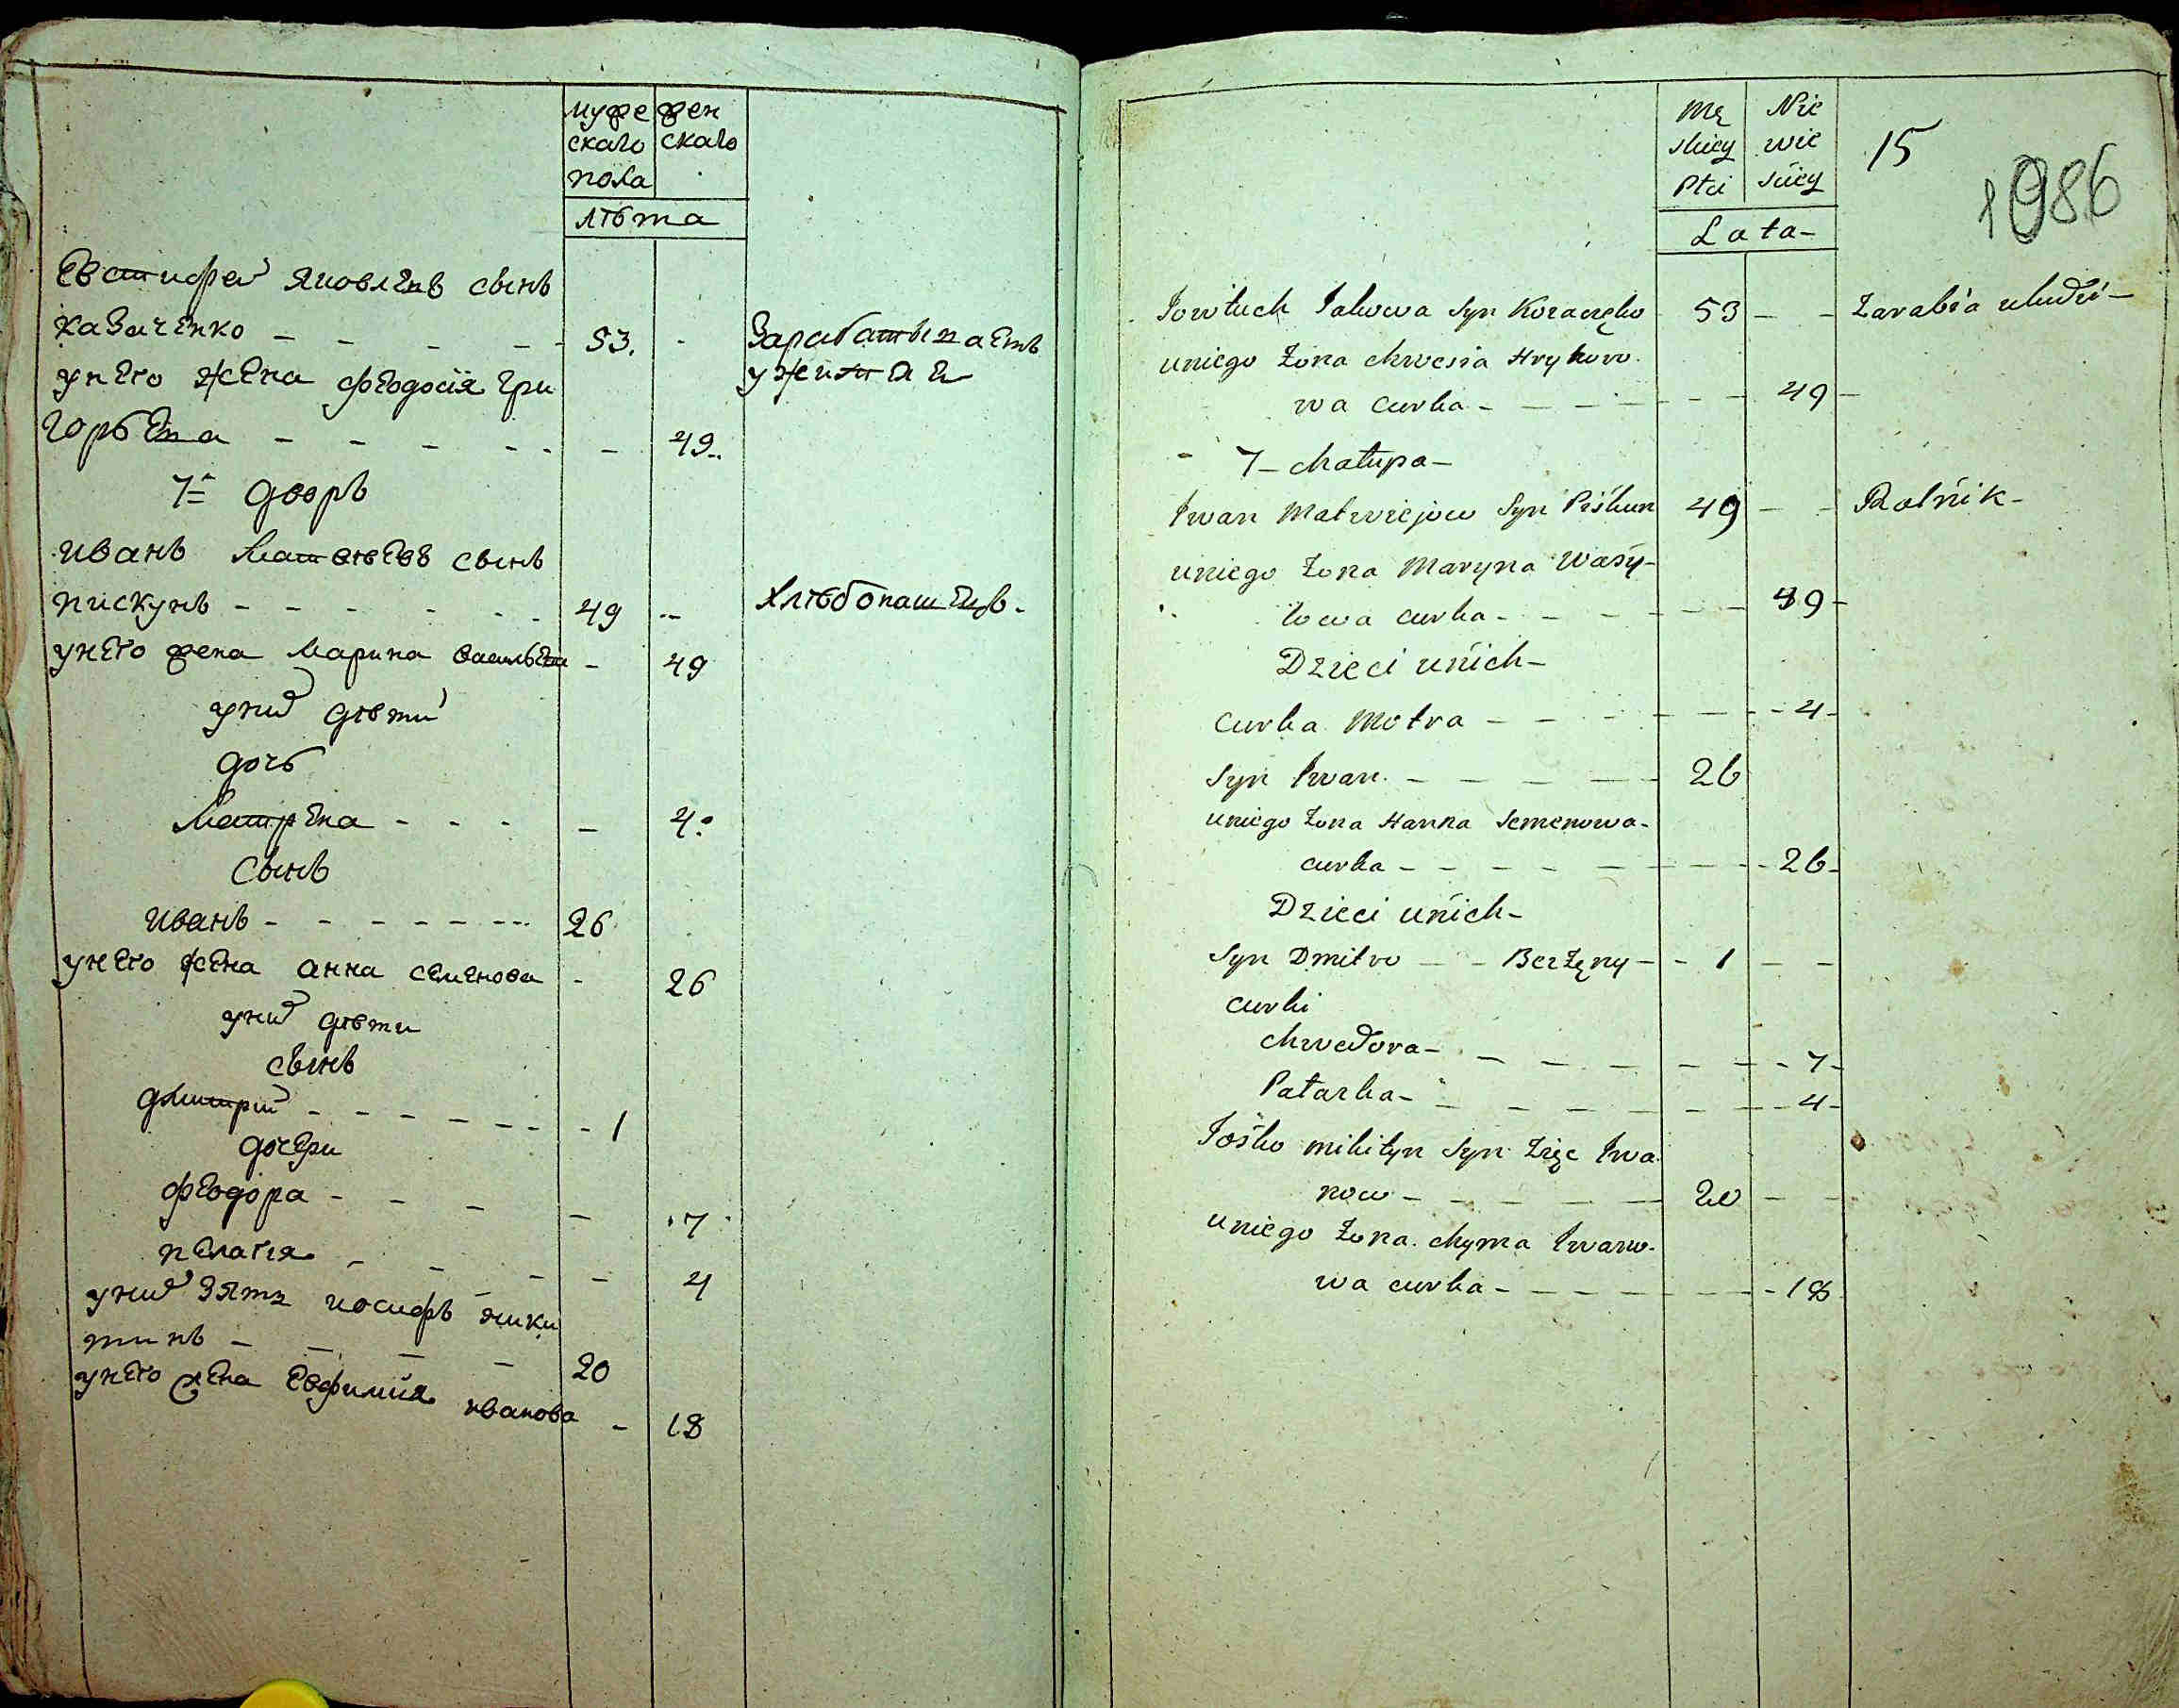 муже
скаго
пола
жен
скаго
лѣта
Евстифей Яковлевъ сынъ
Казаченко - - - - - 53. -
Зарабатываетъ
у него жена Феодосiя Гри
горьева - - - - - - 49.
7й дворъ
Иванъ Матвѣевъ сынъ
Пискунъ - - - - - - 49 -- Хлѣбопашецъ.
у него жена Марина Васильева - 49
у них дѣти
дочь
Матрена - - - - 4.
сынъ
Иванъ - - - - - - - 26
у него жена Анна Семенова - 26
у них дѣти
сынъ
Дмитрий - - - - - - - 1
дочери
Феодора - - - - 7
Пелагия - - - - 4
у них зять Иосифъ Ники
тинъ - - - - 20
у него жена Евфимия Иванова - 18
Mę
skiey
Płci
Nie
wie
śćiey
Lata -
15
1986
Jowtuch Jakowa Syn Kozaczęko 53 - - Zarabia u ludzi -
u niego Żona Chwesia Hrykoro
wa curka - - - - - - 49 -
7 - chałupa -
Iwan Matwiejow Syn Piskun 49 - - Rolnik -
u niego Żona Maryna Wasy-
lowa curka - - - - - 49 -
Dzieci u nich -
curka Motra - - - - - - 4 -
Syn Iwan. - - - - - 26
u niego Żona Hanna Semenowa -
curka - - - - - - - - 26 -
Dzieci u nich -
Syn Dmitro - - Bezżęny - - 1 - -
curki
Chwedora - - - - - - - - 7 -
Patazka - - - - - - - - 4 -
Jośko Mikityn Syn Zięc Iwa
now - - - - - - 20 - -
u niego Żona. Chyma Iwano -
wa curka - - - - - - - - 18